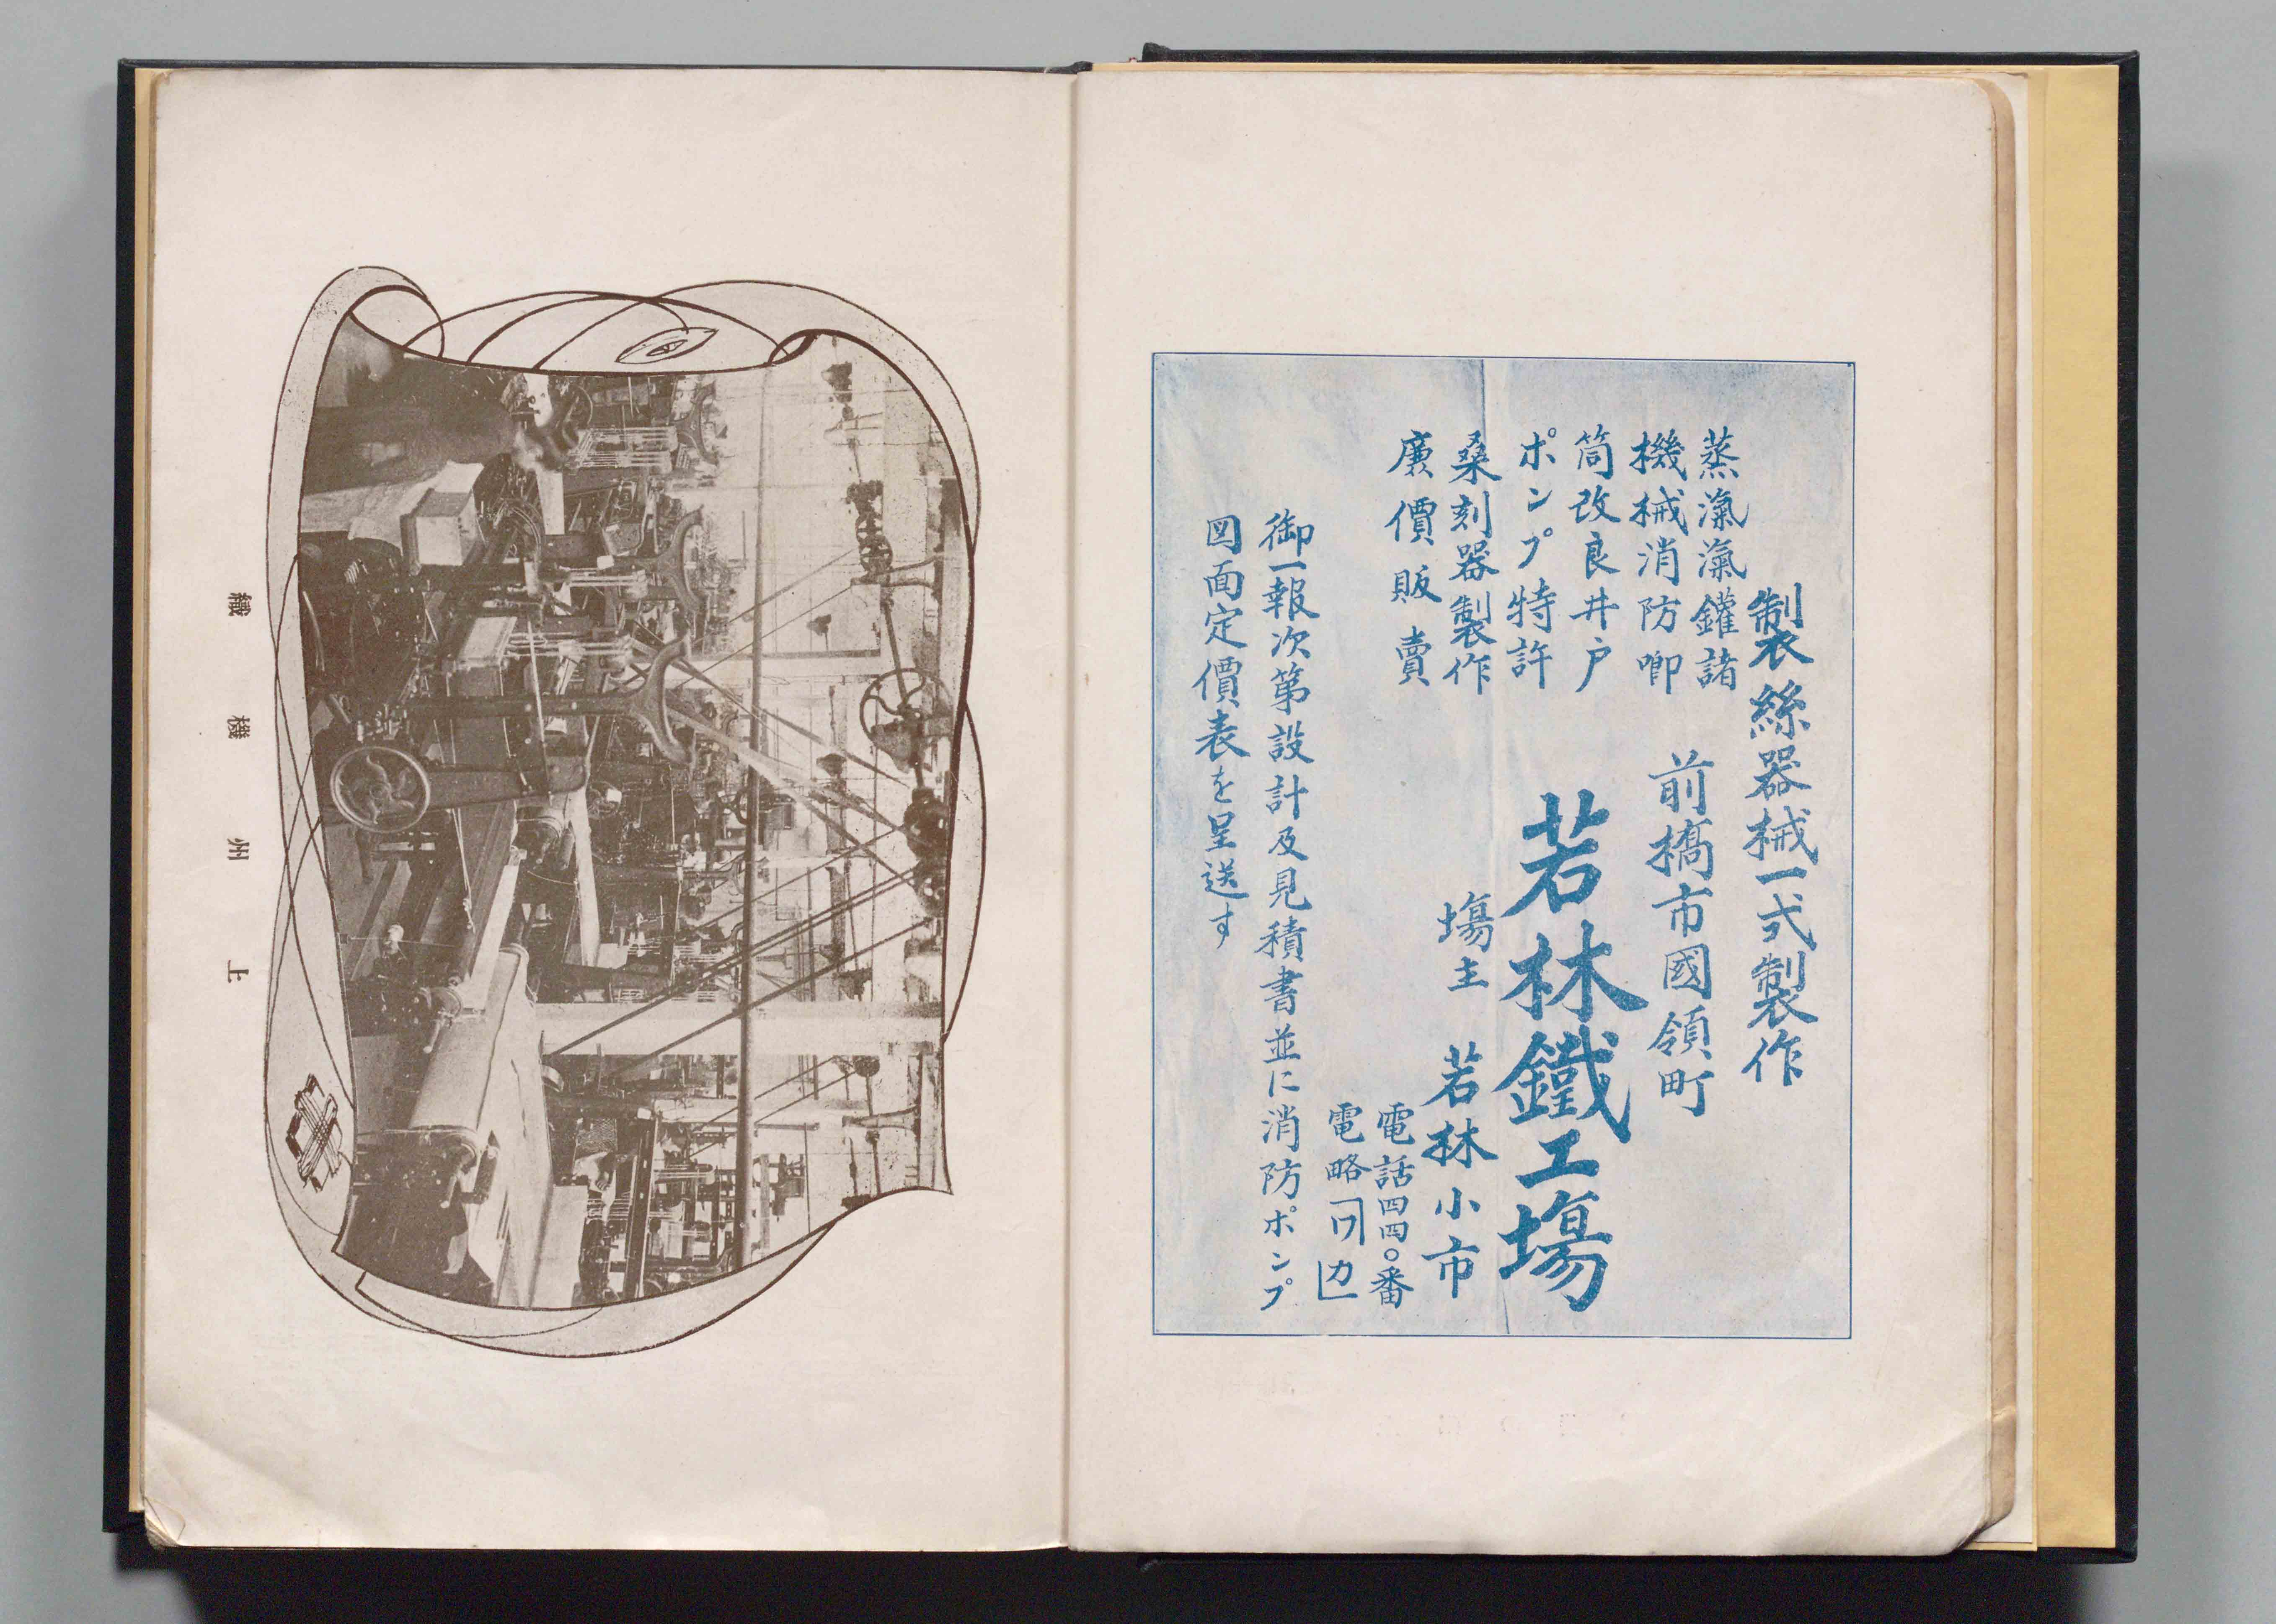 製絲器械一式製作
蒸滊滊鑵諸
機械消防喞
筒改良井戸
ポンプ特許
桑刻器製作
廉價販賣
前橋市國領町
若林鐵工塲
塲主 若林小市
電話四四〇番
電略「ワカ」
御一報次第設計及見積書並に消防ポンプ
図面定價表を呈送す
上州機織